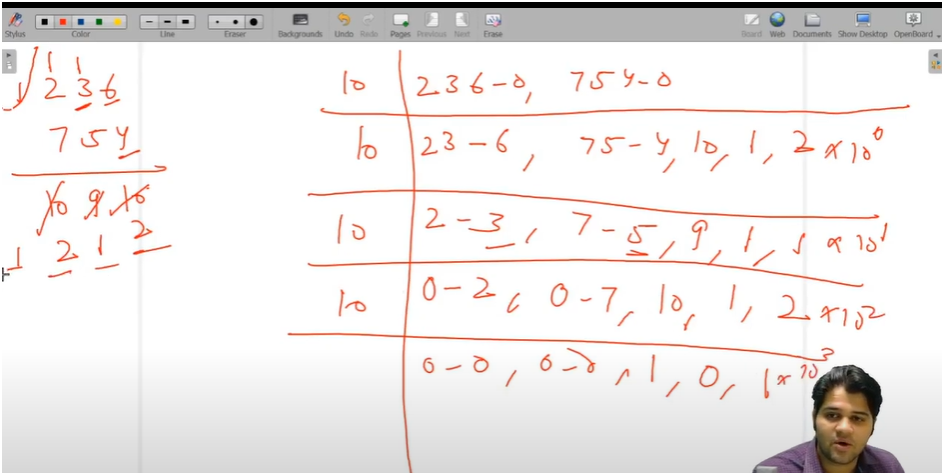 Stylus Color Line Eraser Backgrounds Undo Redo Pages Previous Next Erase Board Web Documents Show Desktop OpenBoard
1 1
1 2 3 6
7 5 4
10 9 10
1 2 1 2
10 236-0, 754-0
10 23-6, 75-4, 10, 1, 2 × 10⁰
10 2-3, 7-5, 9, 1, 1 × 10¹
10 0-2, 0-7, 10, 1, 2 × 10²
0-0, 0-0, 1, 0, 1 × 10³